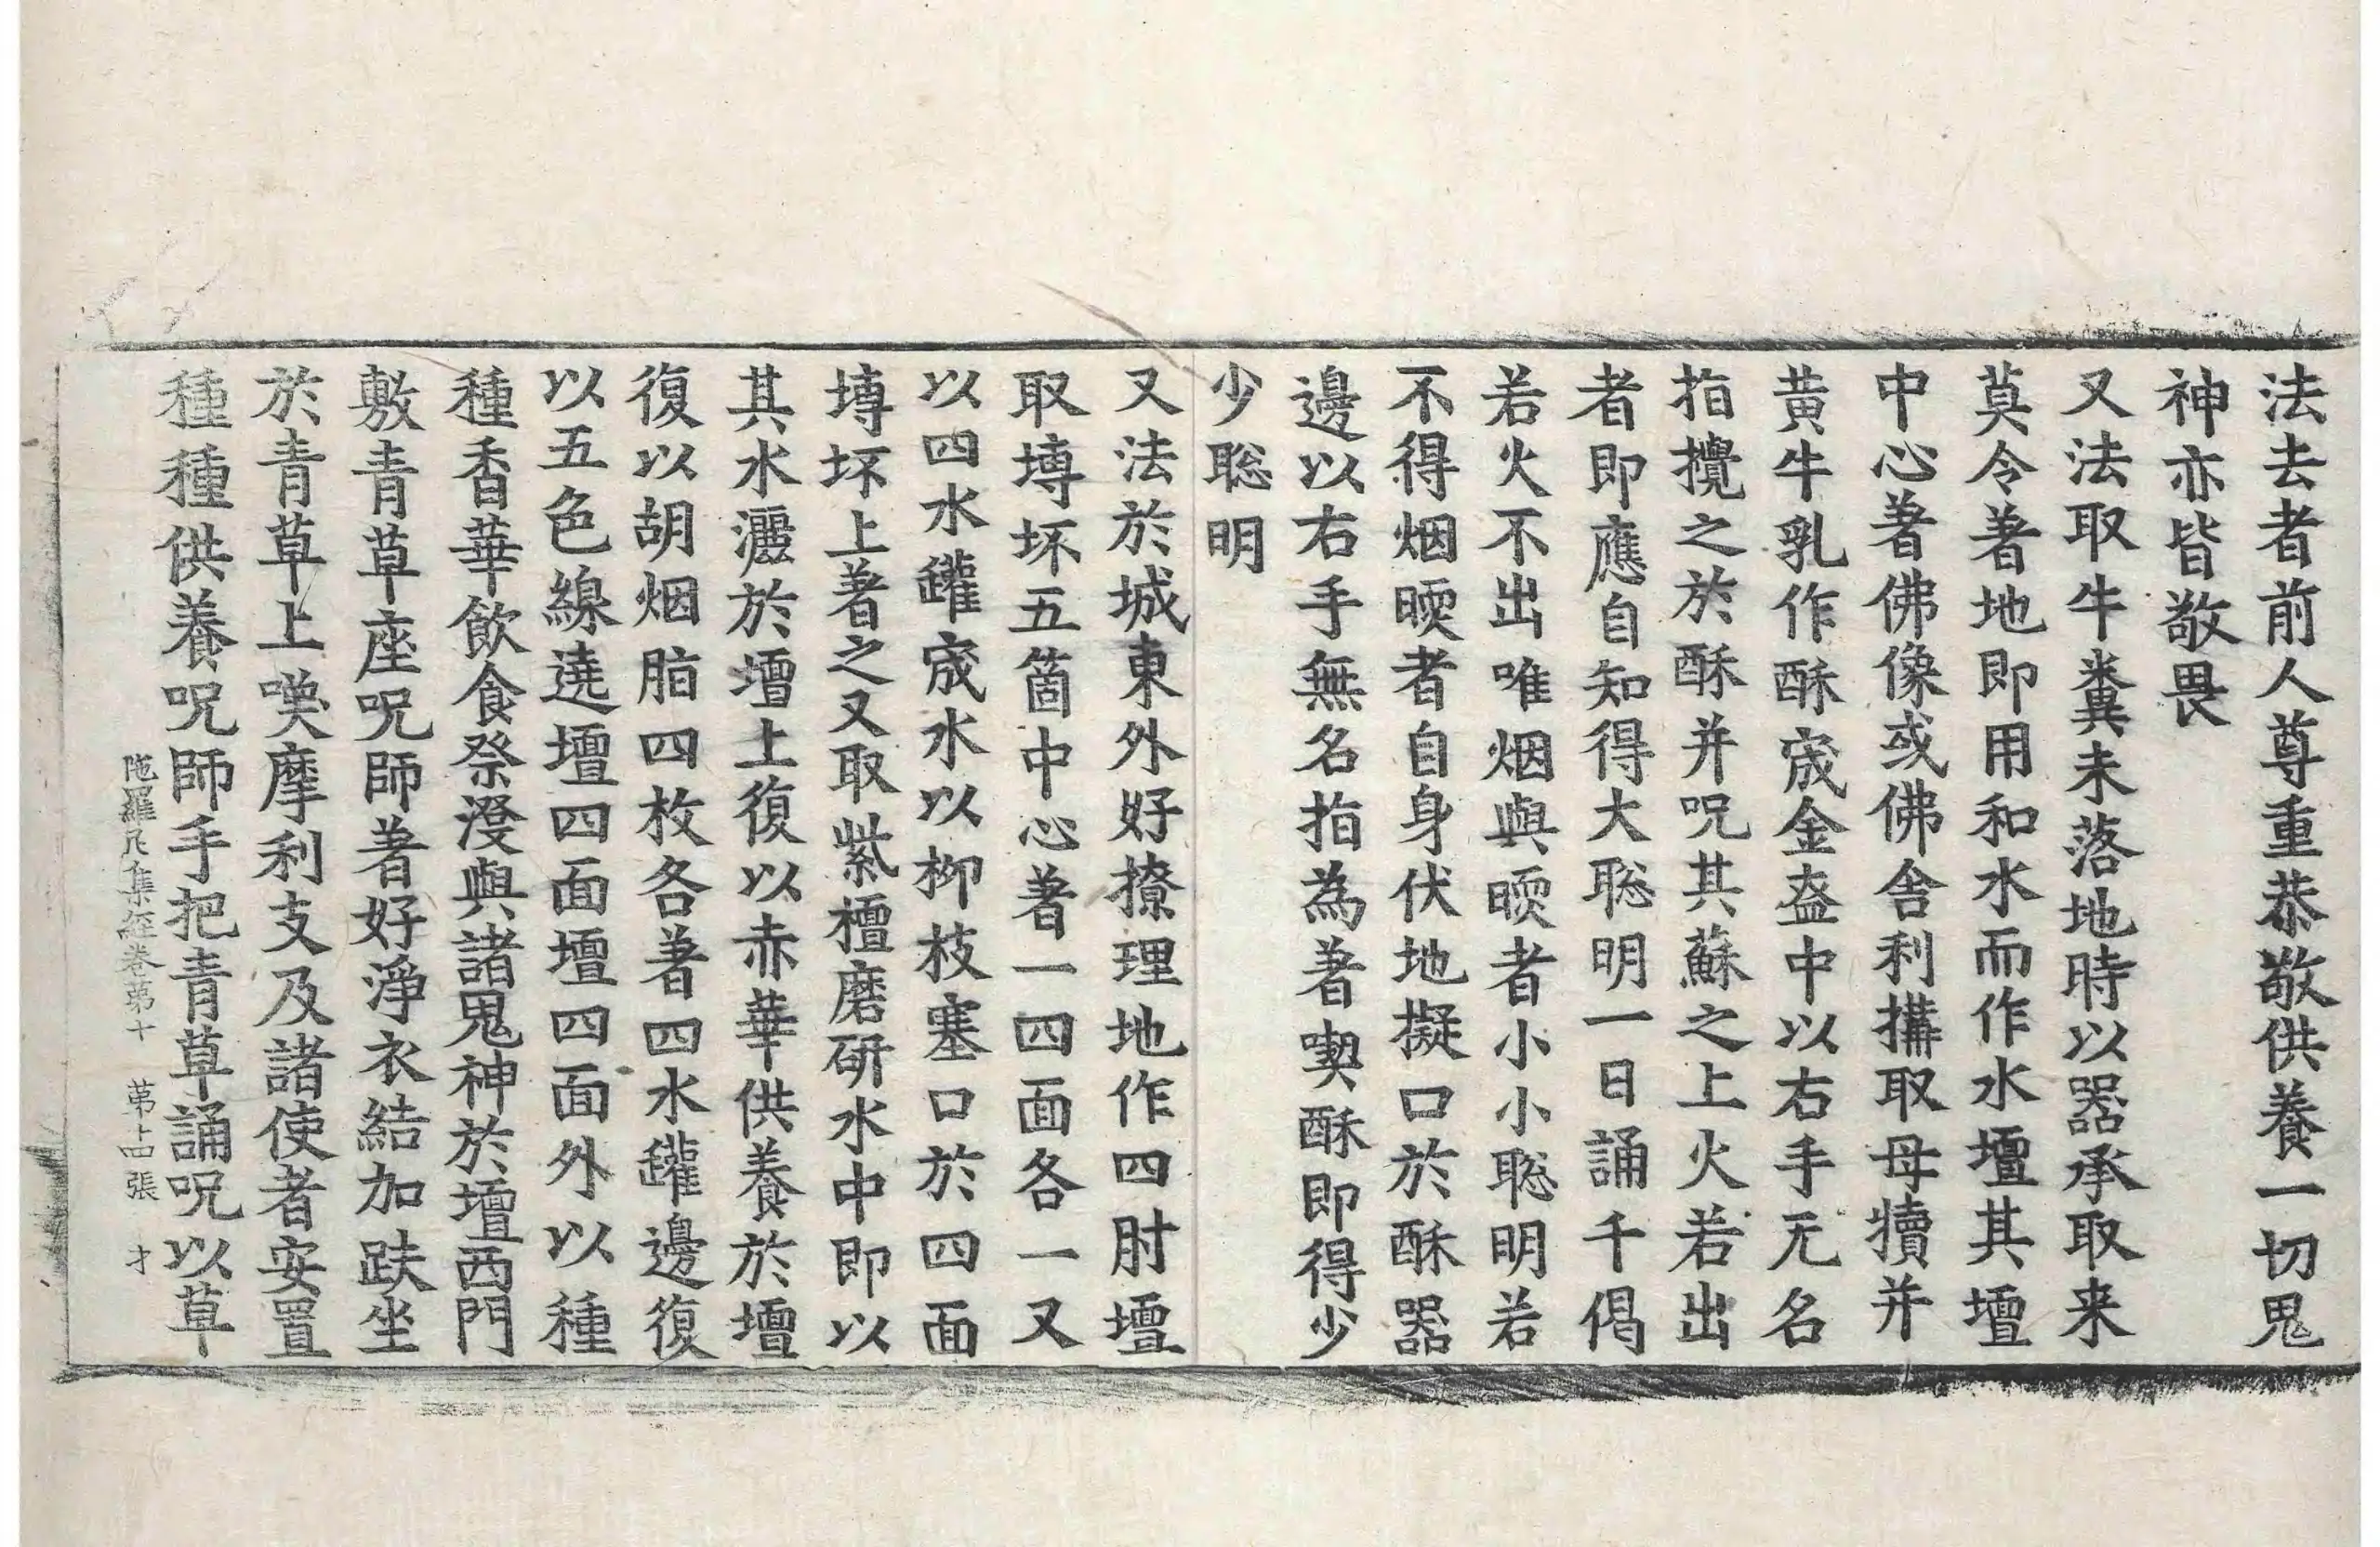 法去者前人尊重恭敬供養一切鬼
神亦皆敬畏
又法取牛糞未落地時以器承取来
莫令著地即用和水而作水壇其壇
中心著佛像或佛舍利搆取母犢并
黄牛乳作酥宬金盔中以右手无名
指攪之於酥并呪其蘇之上火若出
者即應自知得大聡明一日誦千偈
若火不出唯烟與㬉者小小聡明若
不得烟㬉者自身伏地擬口於酥器
邊以右手無名指為著喫酥即得少
少聡明
又法於城東外好撩理地作四肘壇
取塼坏五箇中心著一四面各一又
以四水罐宬水以柳枝塞口於四面
塼坏上著之又取紫檀磨研水中即以
其水灑於壇上復以赤華供養於壇
復以胡烟脂四枚各著四水罐邊復
以五色線遶壇四面壇四面外以種
種香華飲食祭㴑與諸鬼神於壇西門
敷青草座呪師著好淨衣結加趺坐
於青草上嘆摩利支及諸使者安置
種種供養呪師手把青草誦呪以草
陁羅尼集経卷第十 第十四張 才